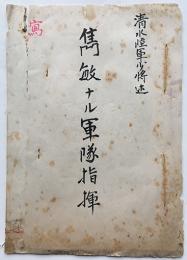 寫
清水陸軍少將述
雋敏ナル軍隊指揮